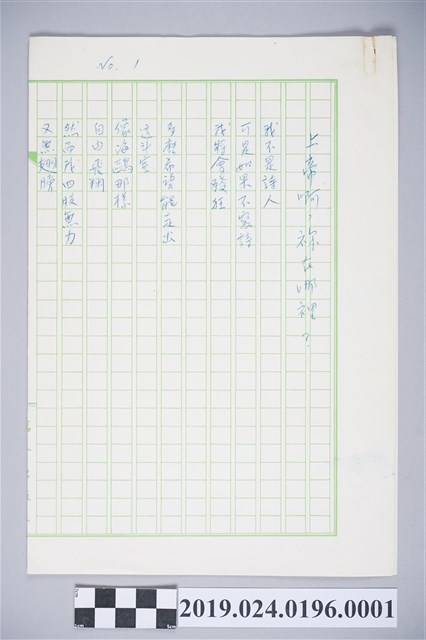 No. 1
上帝啊，祢在哪裡？
我不是詩人
可是如果不寫詩
我將會發狂
多麼希望能走出
這斗室
像海鷗那樣
自由飛翔
然而我四肢無力
又無翅膀
2019.024.0196.0001